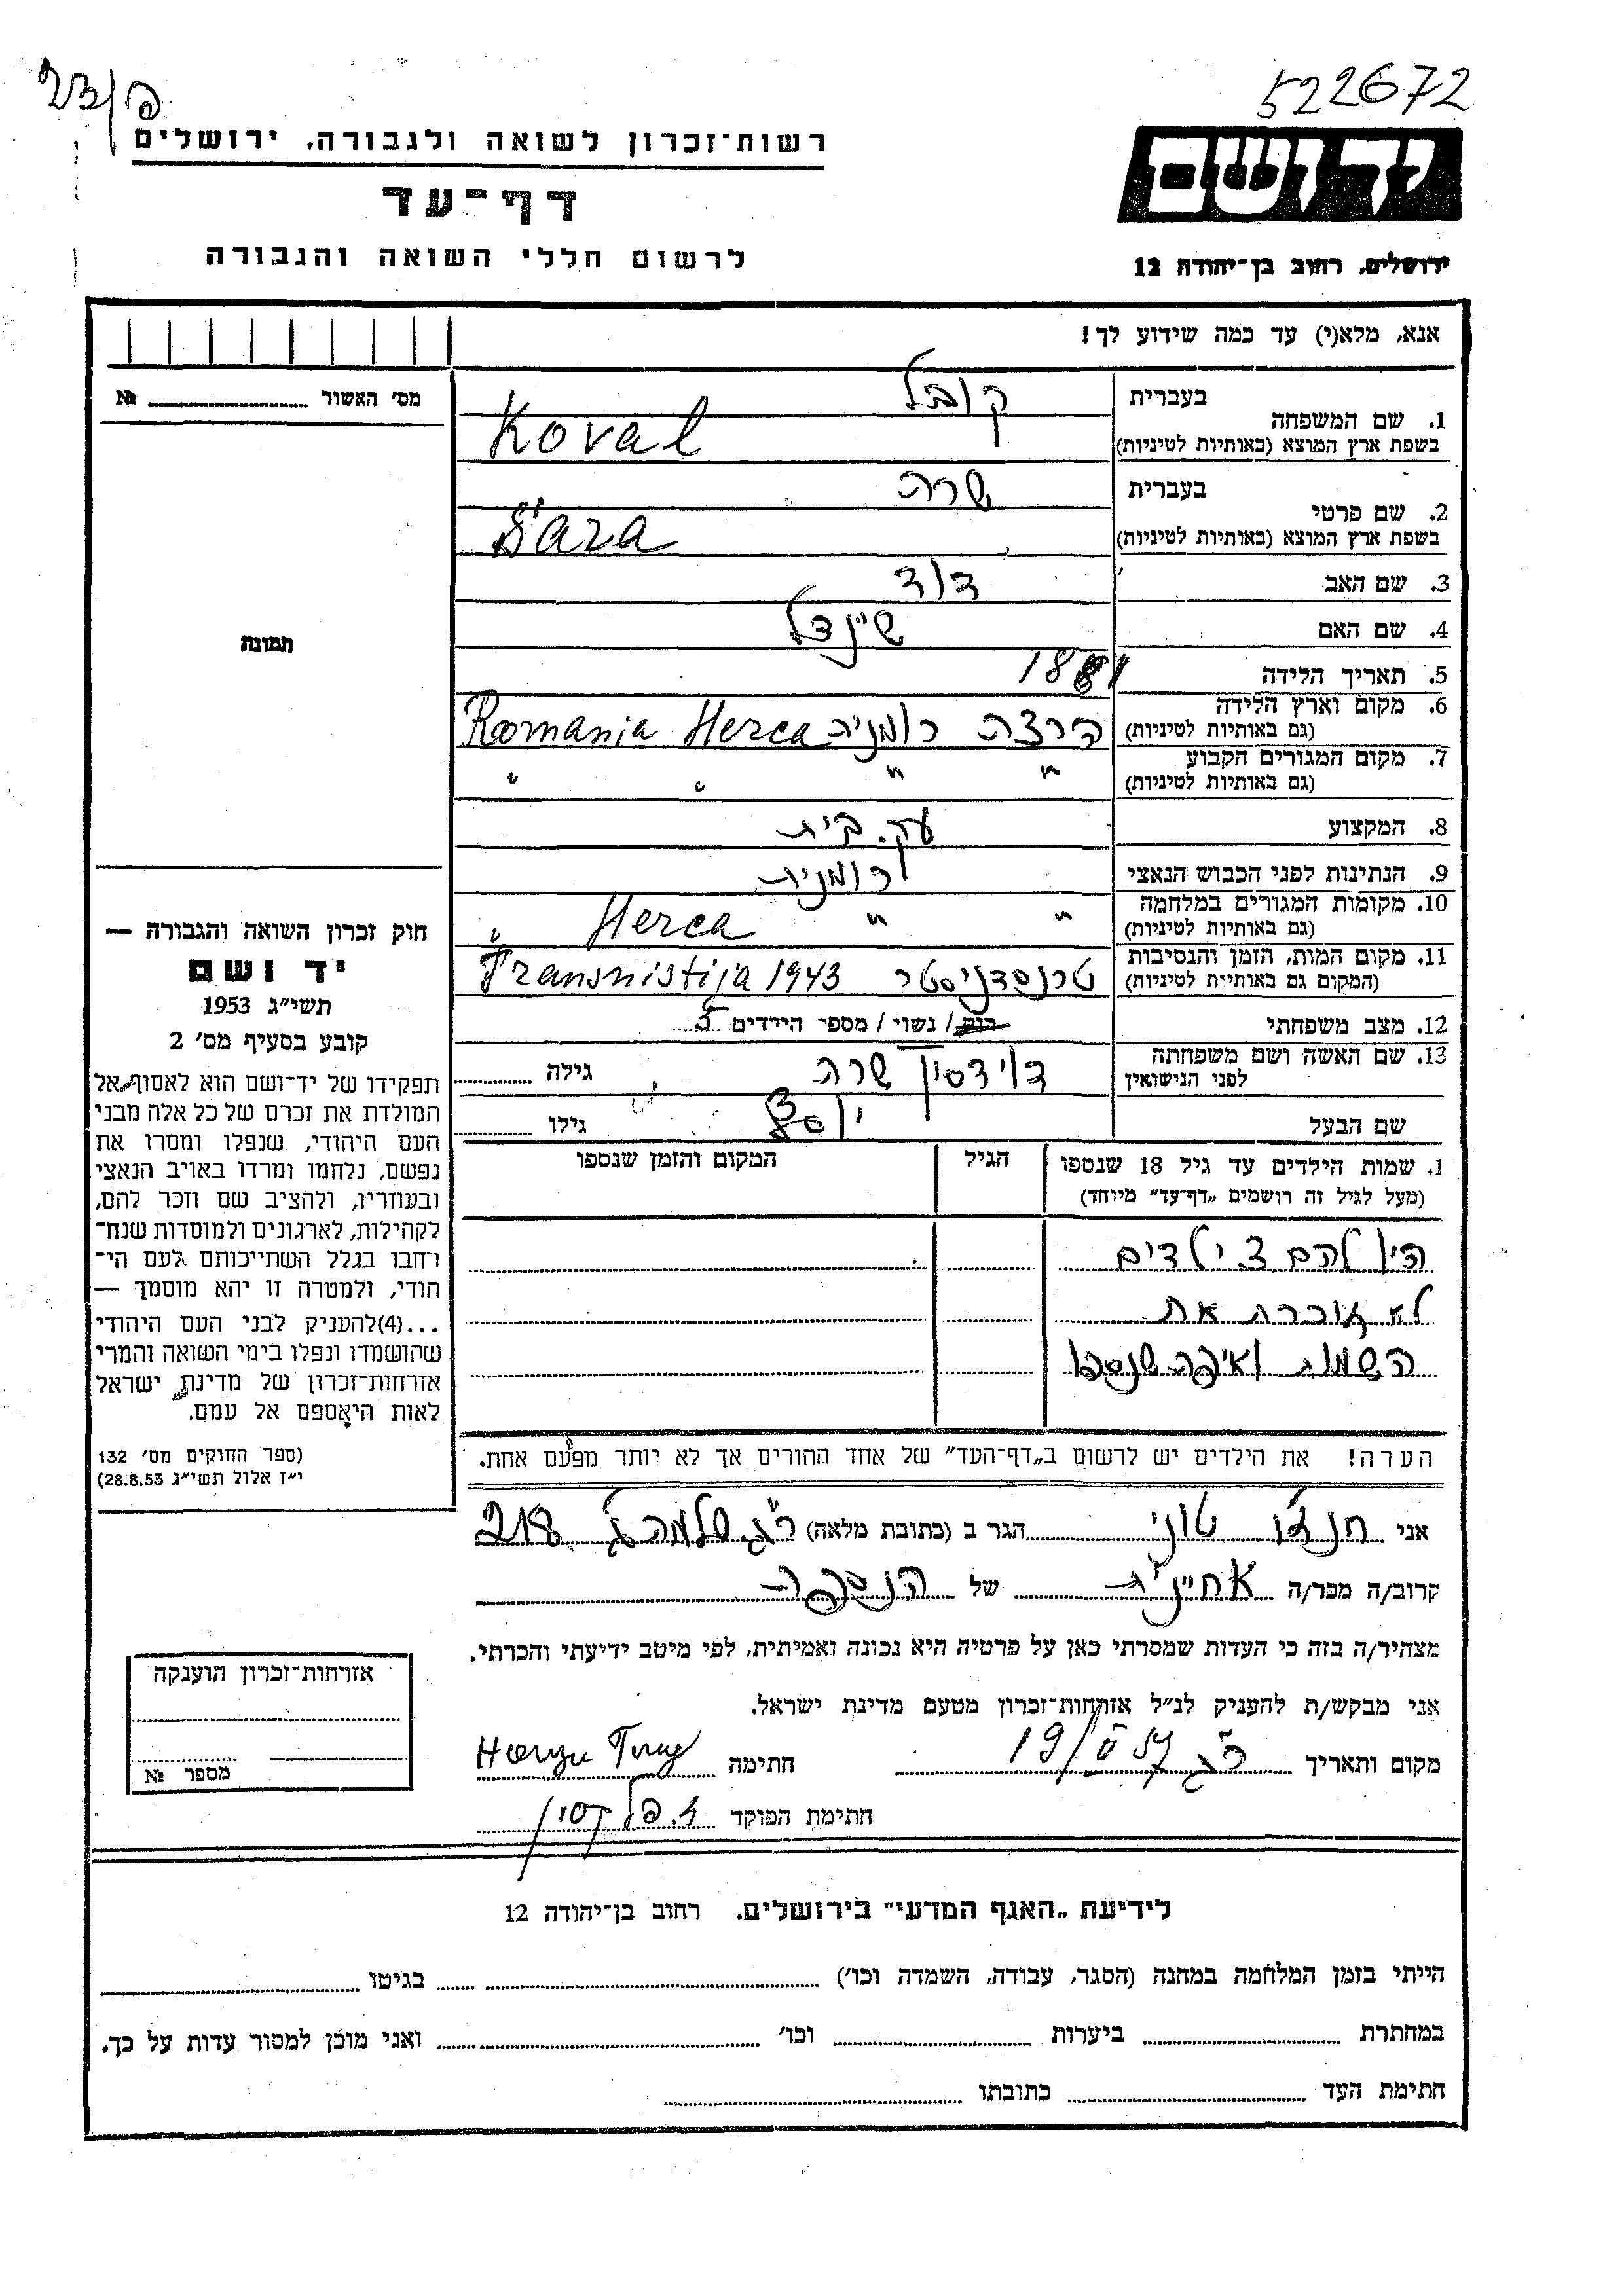 522672
רשות־זכרון לשואה ולגבורה, ירושלים
יד ושם
דף־עד
לרשום חללי השואה והגבורה
ירושלים, רחוב בן־יהודה 12
אנא, מלא(י) עד כמה שידוע לך!
מס' האשור №
תמונה
בעברית קובל
1. שם המשפחה
בשפת ארץ המוצא (באותיות לטיניות) Koval
בעברית שרה
2. שם פרטי
בשפת ארץ המוצא (באותיות לטיניות) Sara
3. שם האב דוד
4. שם האם שיינדל
5. תאריך הלידה
6. מקום וארץ הלידה
(גם באותיות לטיניות) הרצה רומניה Romania Herca
7. מקום המגורים הקבוע
(גם באותיות לטיניות) " " " "
8. המקצוע עק. בית
9. הנתינות לפני הכבוש הנאצי רומנית
10. מקומות המגורים במלחמה
(גם באותיות לטיניות) " " Herca "
11. מקום המות, הזמן והנסיבות
(המקום גם באותיות לטיניות) טרנסדניסטר Transnistija 1943
12. מצב משפחתי רוק / נשוי / מספר הילדים 5
13. שם האשה ושם משפחתה
לפני הנישואין דוידסון שרה גילה
שם הבעל יוסף גילו
1. שמות הילדים עד גיל 18 שנספו הגיל המקום והזמן שנספו
(מעל לגיל זה רושמים „דף־עד" מיוחד)
היו להם 3 ילדים
לא זוכרת את
השמות ואיפה שנספו
חוק זכרון השואה והגבורה —
יד ושם
תשי"ג 1953
קובע בסעיף מס' 2
תפקידו של יד־ושם הוא לאסוף אל
המולדת את זכרם של כל אלה מבני
העם היהודי, שנפלו ומסרו את
נפשם, נלחמו ומרדו באויב הנאצי
ובעוזריו, ולהציב שם וזכר להם,
לקהילות, לארגונים ולמוסדות שנח־
רחבו בגלל השתייכותם לעם הי־
הודי, ולמטרה זו יהא מוסמך —
...(4) להעניק לבני העם היהודי
שהושמדו ונפלו בימי השואה והמרי
אזרחות־זכרון של מדינת ישראל
לאות היאספם אל עמם.
(ספר החוקים מס' 132
י"ז אלול תשי"ג 28.8.53)
הערה! את הילדים יש לרשום ב„דף־העד" של אחד ההורים אך לא יותר מפעם אחת.
אני חנצו טוני הגר ב (כתובת מלאה) ר"ג שלמה 218
קרוב/ה מכר/ה אחיינית של הנספה
מצהיר/ה בזה כי העדות שמסרתי כאן על פרטיה היא נכונה ואמיתית, לפי מיטב ידיעתי והכרתי.
אני מבקש/ת להעניק לנ"ל אזרחות־זכרון מטעם מדינת ישראל.
מקום ותאריך ר"ג חתימה
חתימת הפוקד
אזרחות־זכרון הוענקה
מספר №
לידיעת „האגף המדעי" בירושלים. רחוב בן־יהודה 12
הייתי בזמן המלחמה במחנה (הסגר, עבודה, השמדה וכו') בגיטו
במחתרת ביערות וכו' ואני מוכן למסור עדות על כך.
חתימת העד כתובתו